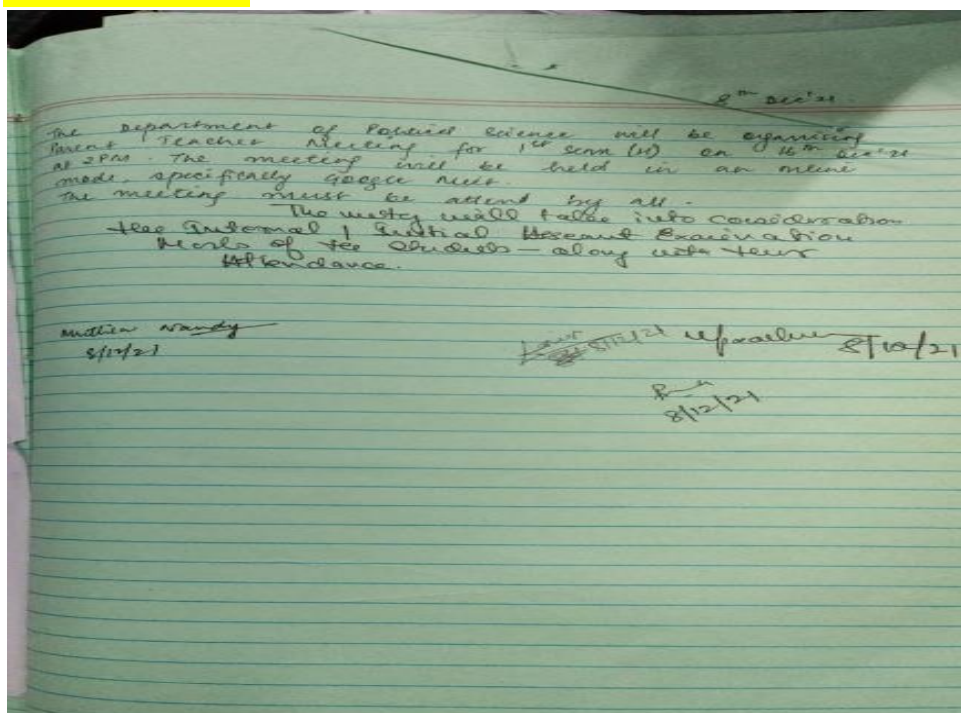 8th Dec'21.
The Department of Political Science will be organising
Parent Teacher Meeting for 1st Sem (H) on 16th Dec'21
at 2PM. The meeting will be held in an online
mode, specifically Google Meet.
The meeting must be attend by all.
The meeting will take into consideration
the Internal / Examination
Marks of the Students along with their
Attendance.
Nandy
8/12/21
8/12/21
8/12/21